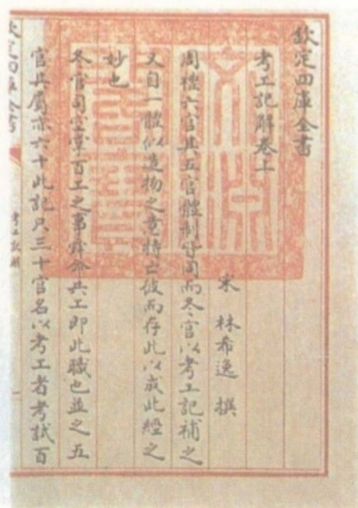 欽定四庫全書
考工記解卷上
宋 林希逸 撰
周禮六官其五官體制皆同而冬官以考工記補之
又自一體似造物之意特亡彼而存此以成此經之
妙也
冬官司空掌百工之事舜命共工即此職也並之五
官其屬亦六十此記只三十官名以考工者考試百
欽定四庫全書
考工記解
文淵
閣寶